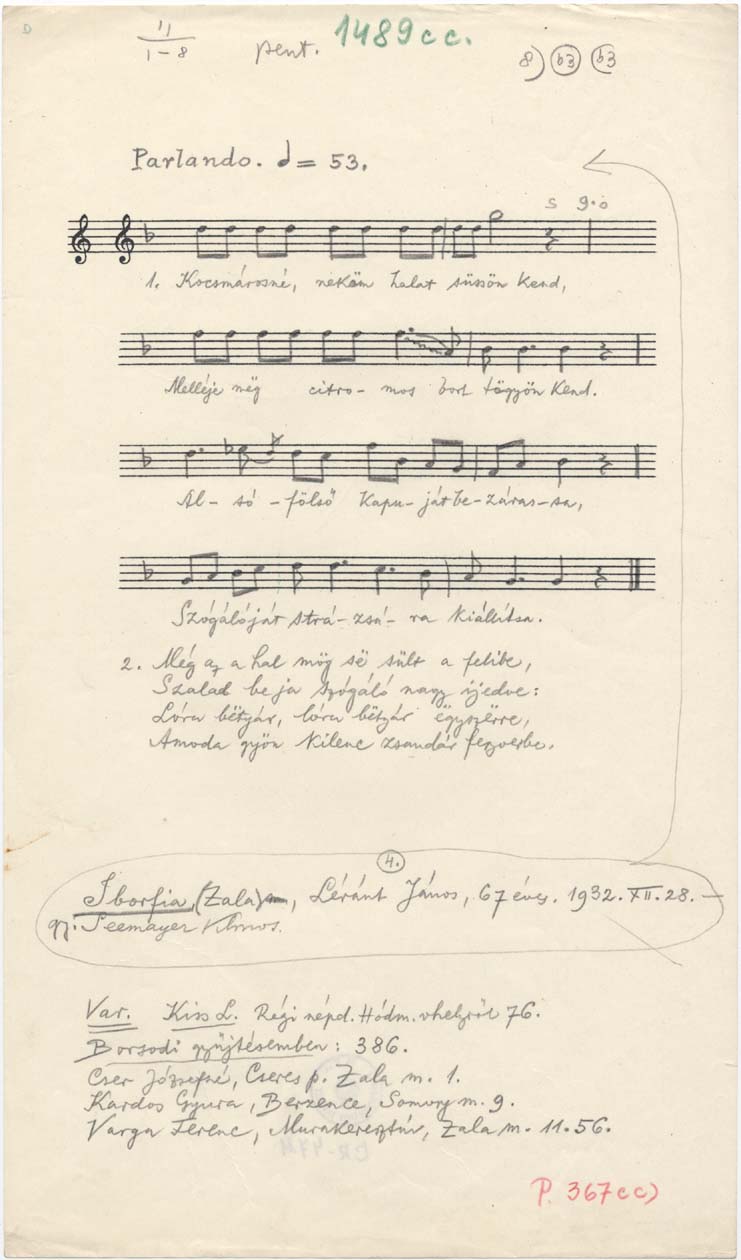 11
1-8
pent.
1489cc.
8) b3 b3
Parlando. = 53.
s 9.ö
1. Kocsmárosné, neköm halat süssön kend,
Melléje mëg citro- mos bort tögyön kend.
Al- só -fölső kapu-ját be-záras-sa,
Szógálóját strá- zsá- ra kiállítsa.
2. Még az a hal mög së sült a felibe,
Szalad be ja szógáló nagy ijedve:
Lóra bëtyár, lóra bëtyár ëgyszërre,
Amoda gyön kilenc zsandár fegverbe.
4.
Iborfia, (Zala), Léránt János, 67 éves. 1932. XII. 28. —
gy. Seemayer Vilmos.
Var. Kiss L. Régi népd. Hódm.vhelyről 76.
Borsodi gyüjtésemben: 386.
Cser Józsefné, Cseres p. Zala m. 1.
Kardos Gyura, Berzence, Somogy m. 9.
Varga Ferenc, Murakeresztúr, Zala m. 11.56.
P. 367cc)